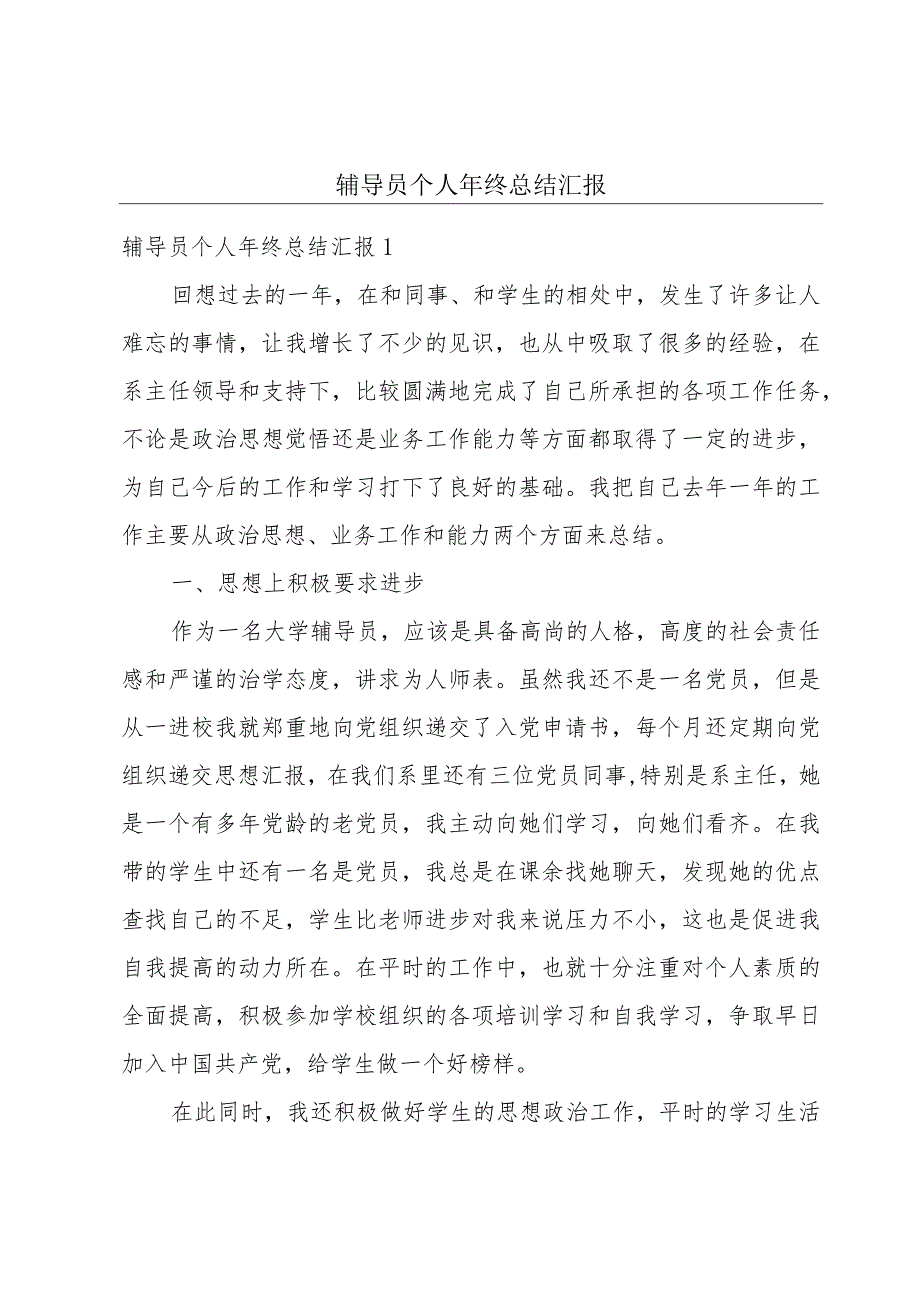 辅导员个人年终总结汇报
辅导员个人年终总结汇报1
回想过去的一年，在和同事、和学生的相处中，发生了许多让人
难忘的事情，让我增长了不少的见识，也从中吸取了很多的经验，在
系主任领导和支持下，比较圆满地完成了自己所承担的各项工作任务，
不论是政治思想觉悟还是业务工作能力等方面都取得了一定的进步，
为自己今后的工作和学习打下了良好的基础。我把自己去年一年的工
作主要从政治思想、业务工作和能力两个方面来总结。
一、思想上积极要求进步
作为一名大学辅导员，应该是具备高尚的人格，高度的社会责任
感和严谨的治学态度，讲求为人师表。虽然我还不是一名党员，但是
从一进校我就郑重地向党组织递交了入党申请书，每个月还定期向党
组织递交思想汇报，在我们系里还有三位党员同事,特别是系主任，她
是一个有多年党龄的老党员，我主动向她们学习，向她们看齐。在我
带的学生中还有一名是党员，我总是在课余找她聊天，发现她的优点
查找自己的不足，学生比老师进步对我来说压力不小，这也是促进我
自我提高的动力所在。在平时的工作中，也就十分注重对个人素质的
全面提高，积极参加学校组织的各项培训学习和自我学习，争取早日
加入中国共产党，给学生做一个好榜样。
在此同时，我还积极做好学生的思想政治工作，平时的学习生活